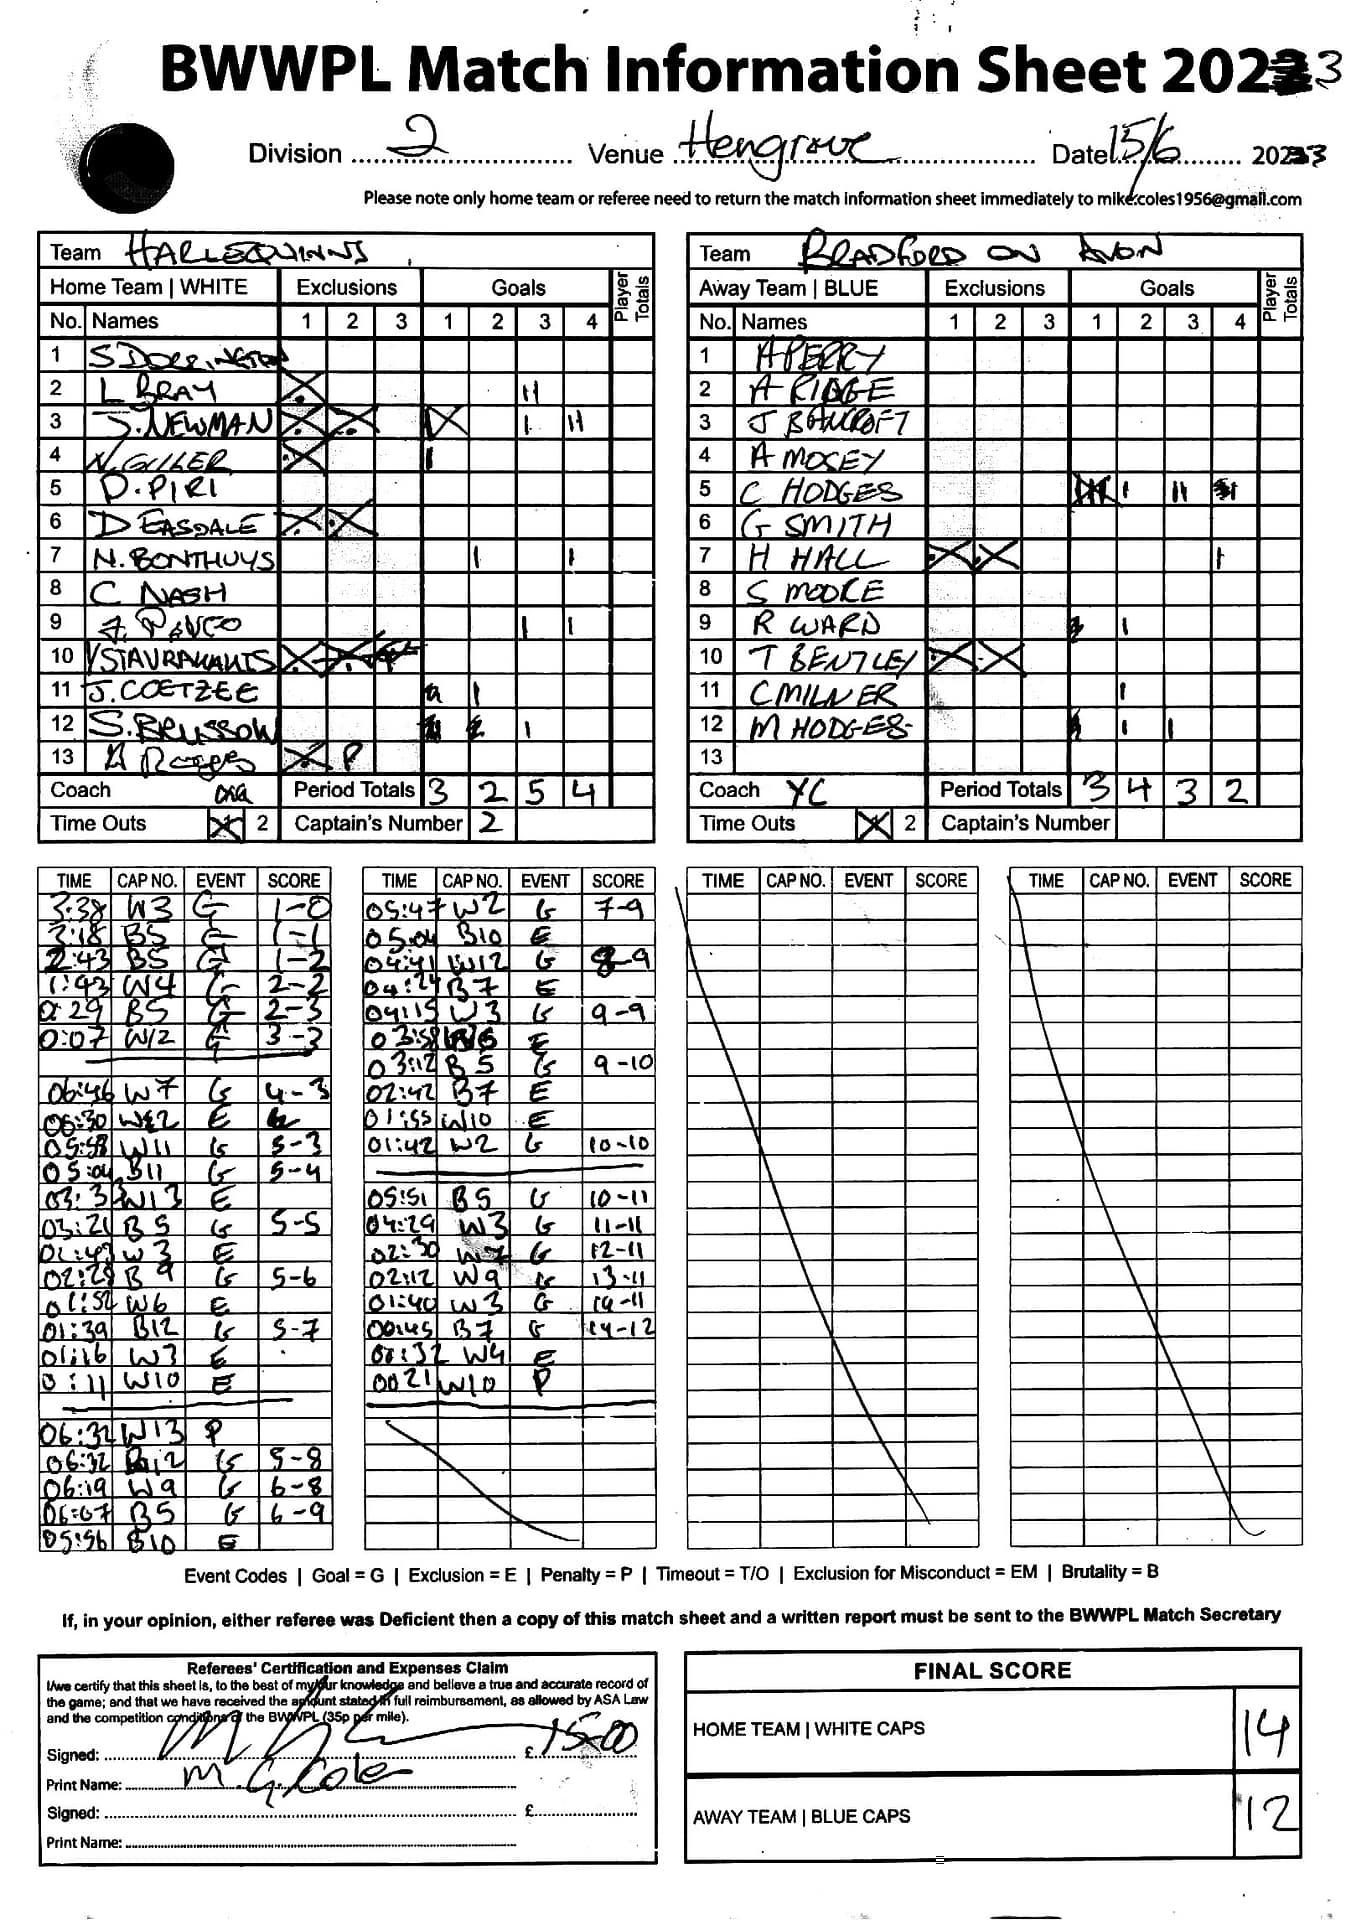 BWWPL Match Information Sheet 2023
Division 2 Venue Hengrove Date 15/6 2023
Please note only home team or referee need to return the match information sheet immediately to mike.coles1956@gmail.com
Team HARLEQUINNS
Home Team | WHITE Exclusions Goals Player Totals
No. Names 1 2 3 1 2 3 4
1 S DORRINGTON
2 L BRAY X II
3 J. NEWMAN X X X I II
4 N GILLER X I
5 D. PIRI
6 D EASDALE X X
7 N. BONTHUYS I I
8 C NASH
9 I I
10 V STAVRAKAKIS X X
11 J. COETZEE I
12 S. BRUSSOW I
13 X P
Coach Period Totals 3 2 5 4
Time Outs X 2 Captain's Number 2
Team BRADFORD ON AVON
Away Team | BLUE Exclusions Goals Player Totals
No. Names 1 2 3 1 2 3 4
1 A PERRY
2 A RIDGE
3 J BANCROFT
4 A MOSEY
5 C HODGES I II
6 G SMITH
7 H HALL X X I
8 S MOORE
9 R WARD I
10 T BENTLEY X X
11 C MILNER I
12 M HODGES I I
13
Coach YC Period Totals 3 4 3 2
Time Outs X 2 Captain's Number
TIME CAP NO. EVENT SCORE
3:38 W3 G 1-0
3:18 B5 G 1-1
2:43 B5 G 1-2
1:43 W4 G 2-2
0:29 B5 G 2-3
0:07 W12 G 3-3
06:46 W7 G 4-3
06:30 E
05:58 W11 G 5-3
05:04 B11 G 5-4
03:33 W13 E
03:21 B5 G 5-5
W3 E
02:28 B9 G 5-6
01:52 W6 E
01:39 B12 G 5-7
01:16 W3 E
0:11 W10 E
06:32 W13 P
06:32 B12 G 5-8
06:19 W9 G 6-8
06:07 B5 G 6-9
05:56 B10 E
TIME CAP NO. EVENT SCORE
05:47 W2 G 7-9
05:04 B10 E
04:41 W12 G 8-9
04:24 B7 E
04:15 W3 G 9-9
03:58 W6 E
03:12 B5 G 9-10
02:42 B7 E
01:55 W10 E
01:42 W2 G 10-10
05:51 B5 G 10-11
04:29 W3 G 11-11
02:30 W7 G 12-11
02:12 W9 G 13-11
01:40 W3 G 14-11
00:45 B7 G 14-12
00:32 W4 E
00 21 W10 P
TIME CAP NO. EVENT SCORE
TIME CAP NO. EVENT SCORE
Event Codes | Goal = G | Exclusion = E | Penalty = P | Timeout = T/O | Exclusion for Misconduct = EM | Brutality = B
If, in your opinion, either referee was Deficient then a copy of this match sheet and a written report must be sent to the BWWPL Match Secretary
Referees' Certification and Expenses Claim
I/we certify that this sheet is, to the best of my/our knowledge and believe a true and accurate record of
the game; and that we have received the amount stated in full reimbursement, as allowed by ASA Law
and the competition conditions of the BWWPL (35p per mile).
Signed: £ 15-00
Print Name: M. G. Coles
Signed: £
Print Name:
FINAL SCORE
HOME TEAM | WHITE CAPS 14
AWAY TEAM | BLUE CAPS 12